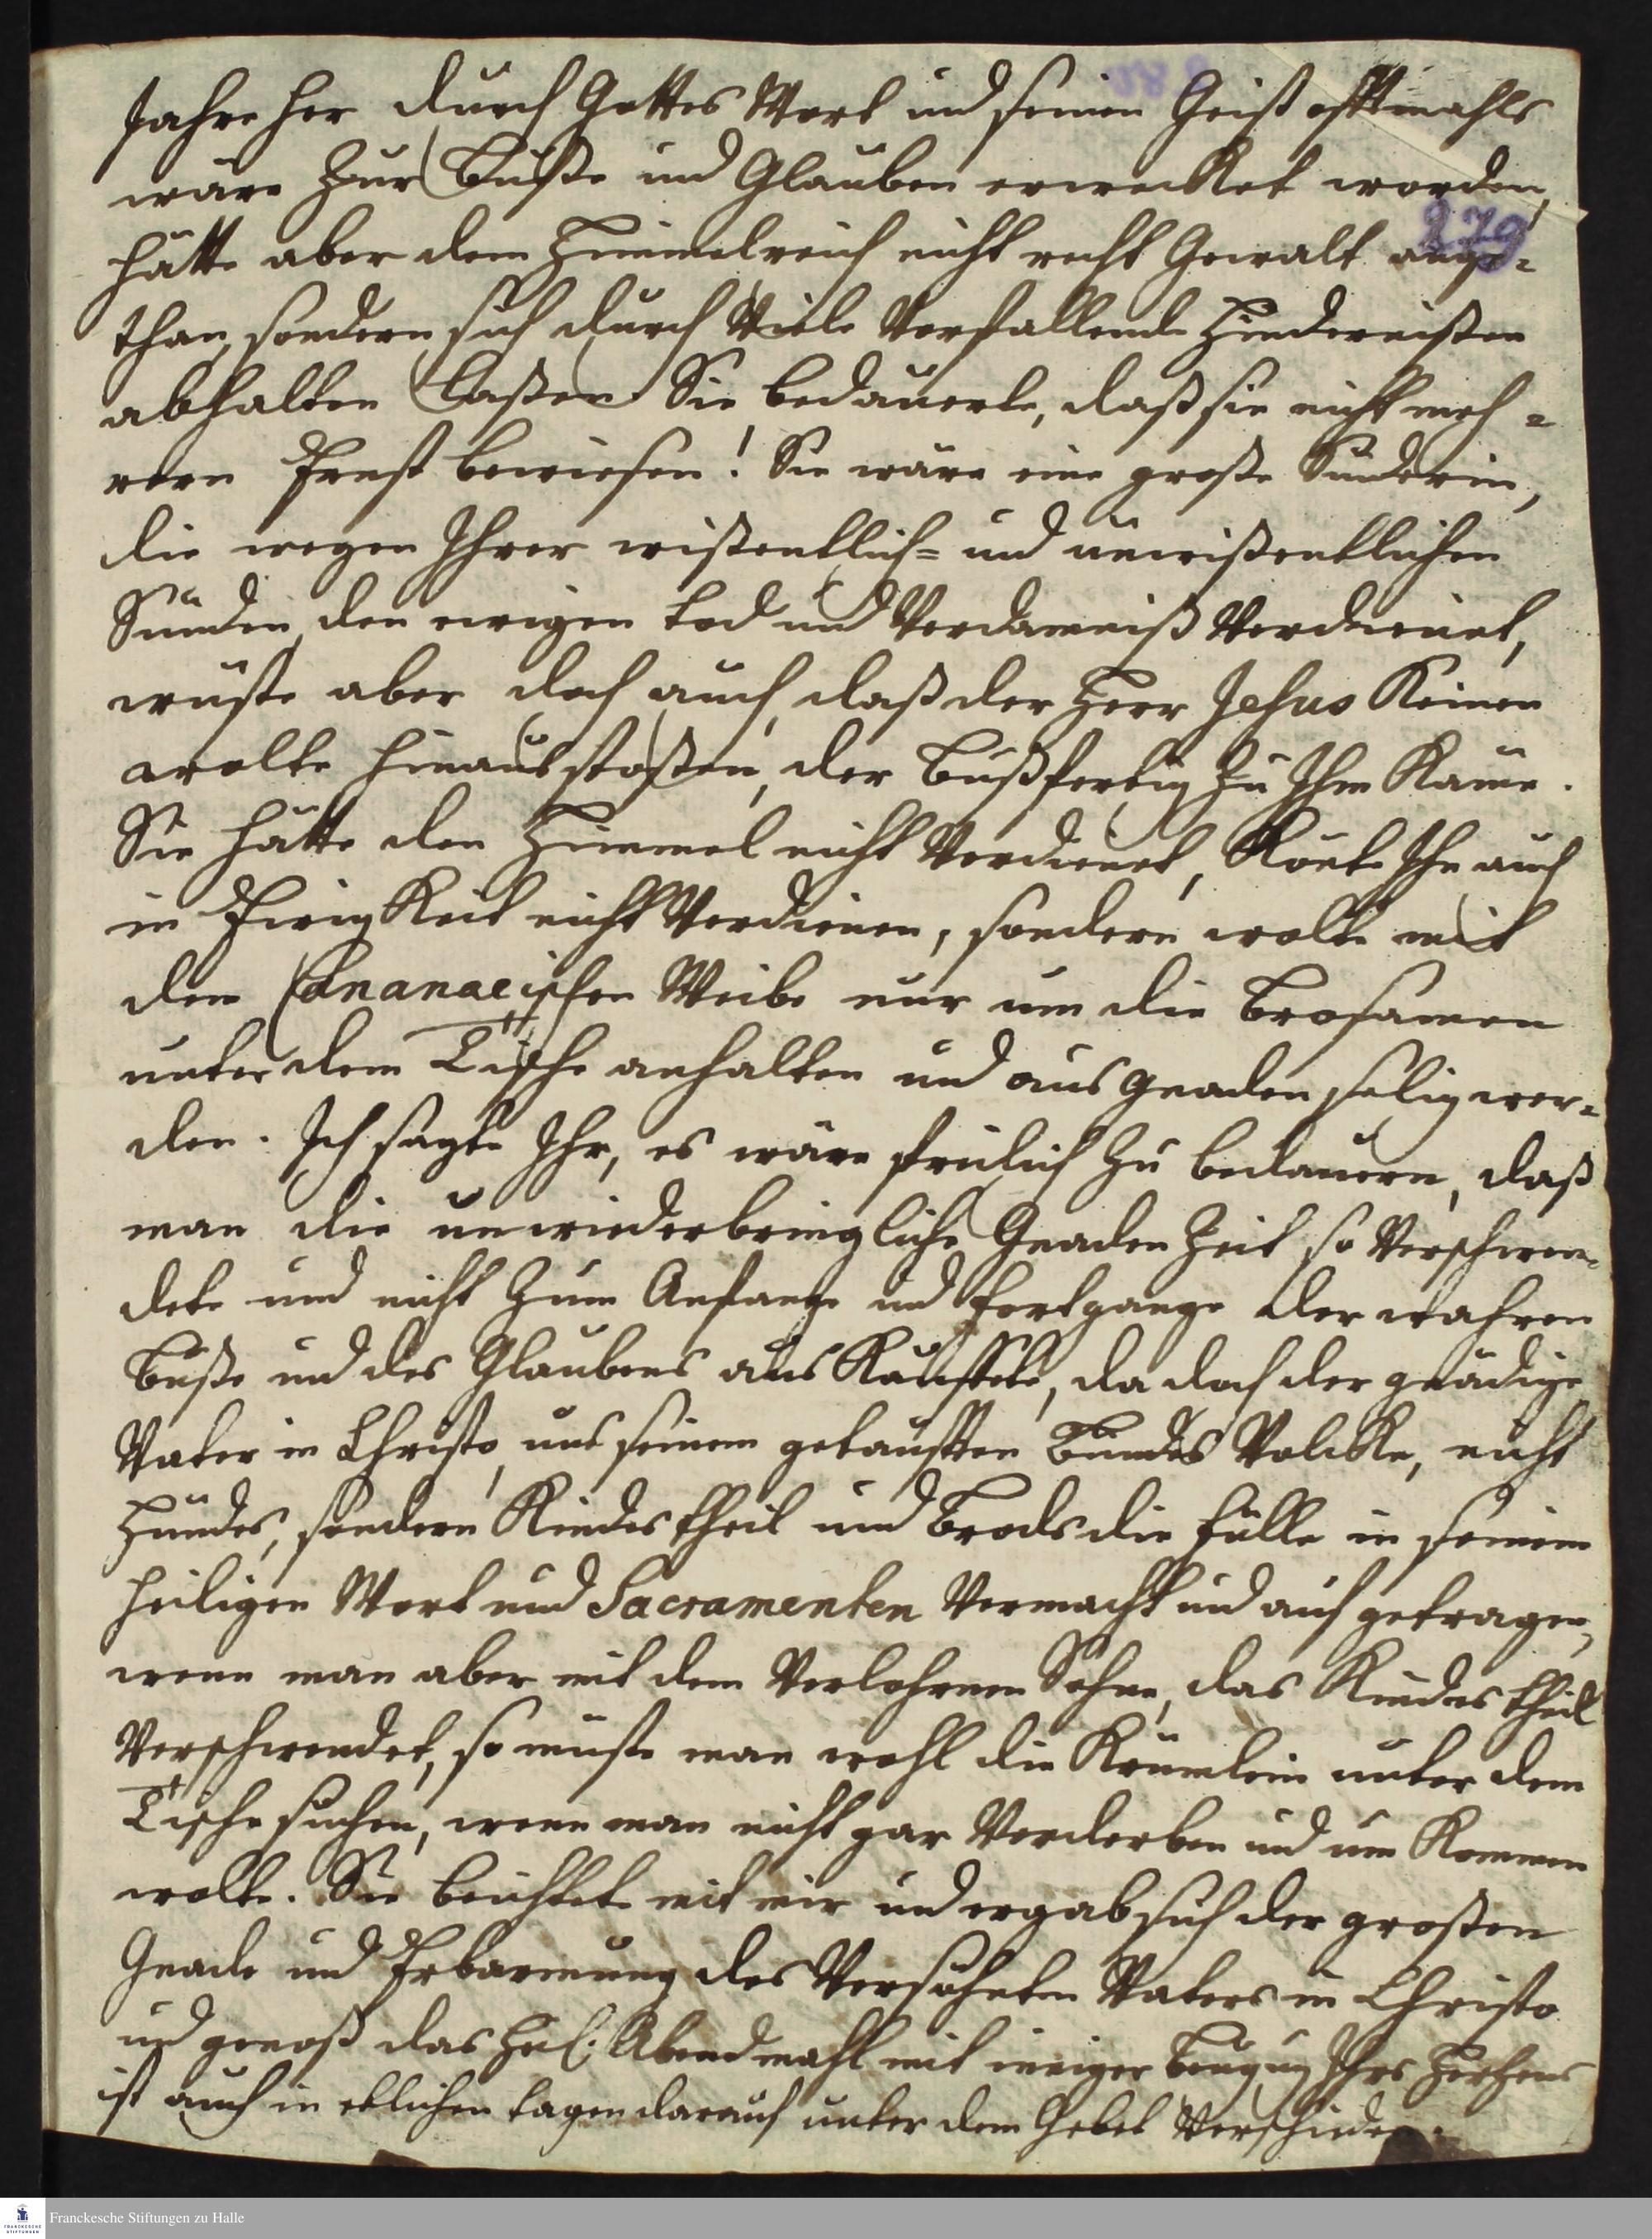 Jahre her durch Gottes Wort und seinen Geist offtmahls
wäre zur Buße und Glauben erwecket worden,
279
hätte aber dem Himmelreich nicht recht Gewalt ange-
than, sondern sich durch Viele Vorfallende Hindernißen
abhalten laßen. Sie bedauerte, daß sie nicht meh-
rern Ernst bewiesen! Sie wäre eine große Sünderin,
die wegen Ihrer wißentlich- und unwißentlichen
Sünden den ewigen tod und Verdamniß Verdienet,
wüste aber doch auch, daß der Herr Jesus Keinen
wolte hinaus stoßen, der Bußfertig zu Ihm Käme.
Sie hätte den Himmel nicht Verdienet, Könte Ihn auch
in EwigKeit nicht Verdienen, sondern wolte mit
dem Cananaeischen Weibe nur um die Brosamen
unter dem Tische anhalten und aus Gnaden selig wer-
den. Ich sagte Ihr, es wäre freilich zu bedauern, daß
man die unwiederbringliche Gnaden Zeit so Verschwen-
dete und nicht zum Anfange und Fortgange der wahren
Buße und des Glaubens aus Kauffete, da doch der gnädige
Vater in Christo, uns seinem getaufften Bundes Volcke, nicht
Hundes, sondern Kindes theil und Brods die fülle in seinem
heiligen Wort und Sacramenten Vermacht und auf getragen,
wenn man aber mit dem Verlohrnen Sohne, das Kindes theil
Verschwendet, so müste man wohl die Krümlein unter dem
Tische suchen, wenn man nicht gar Verderben und um Kommen
wolte. Sie beichtete mit mir und ergab sich der großen
Gnade und Erbarmung des Versöhnten Vaters in Christo
und genoß das Heil. Abendmahl mit inniger Beugung Ihrs Hertzens
ist auch in etlichen tagen darauf unter dem Gebet Verschieden.
Franckesche Stiftungen zu Halle